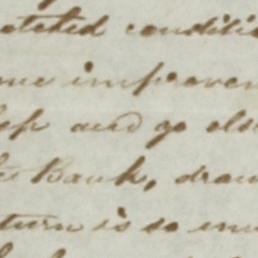 etched conditi
me improven
and go els
Bank, draw
turn is so